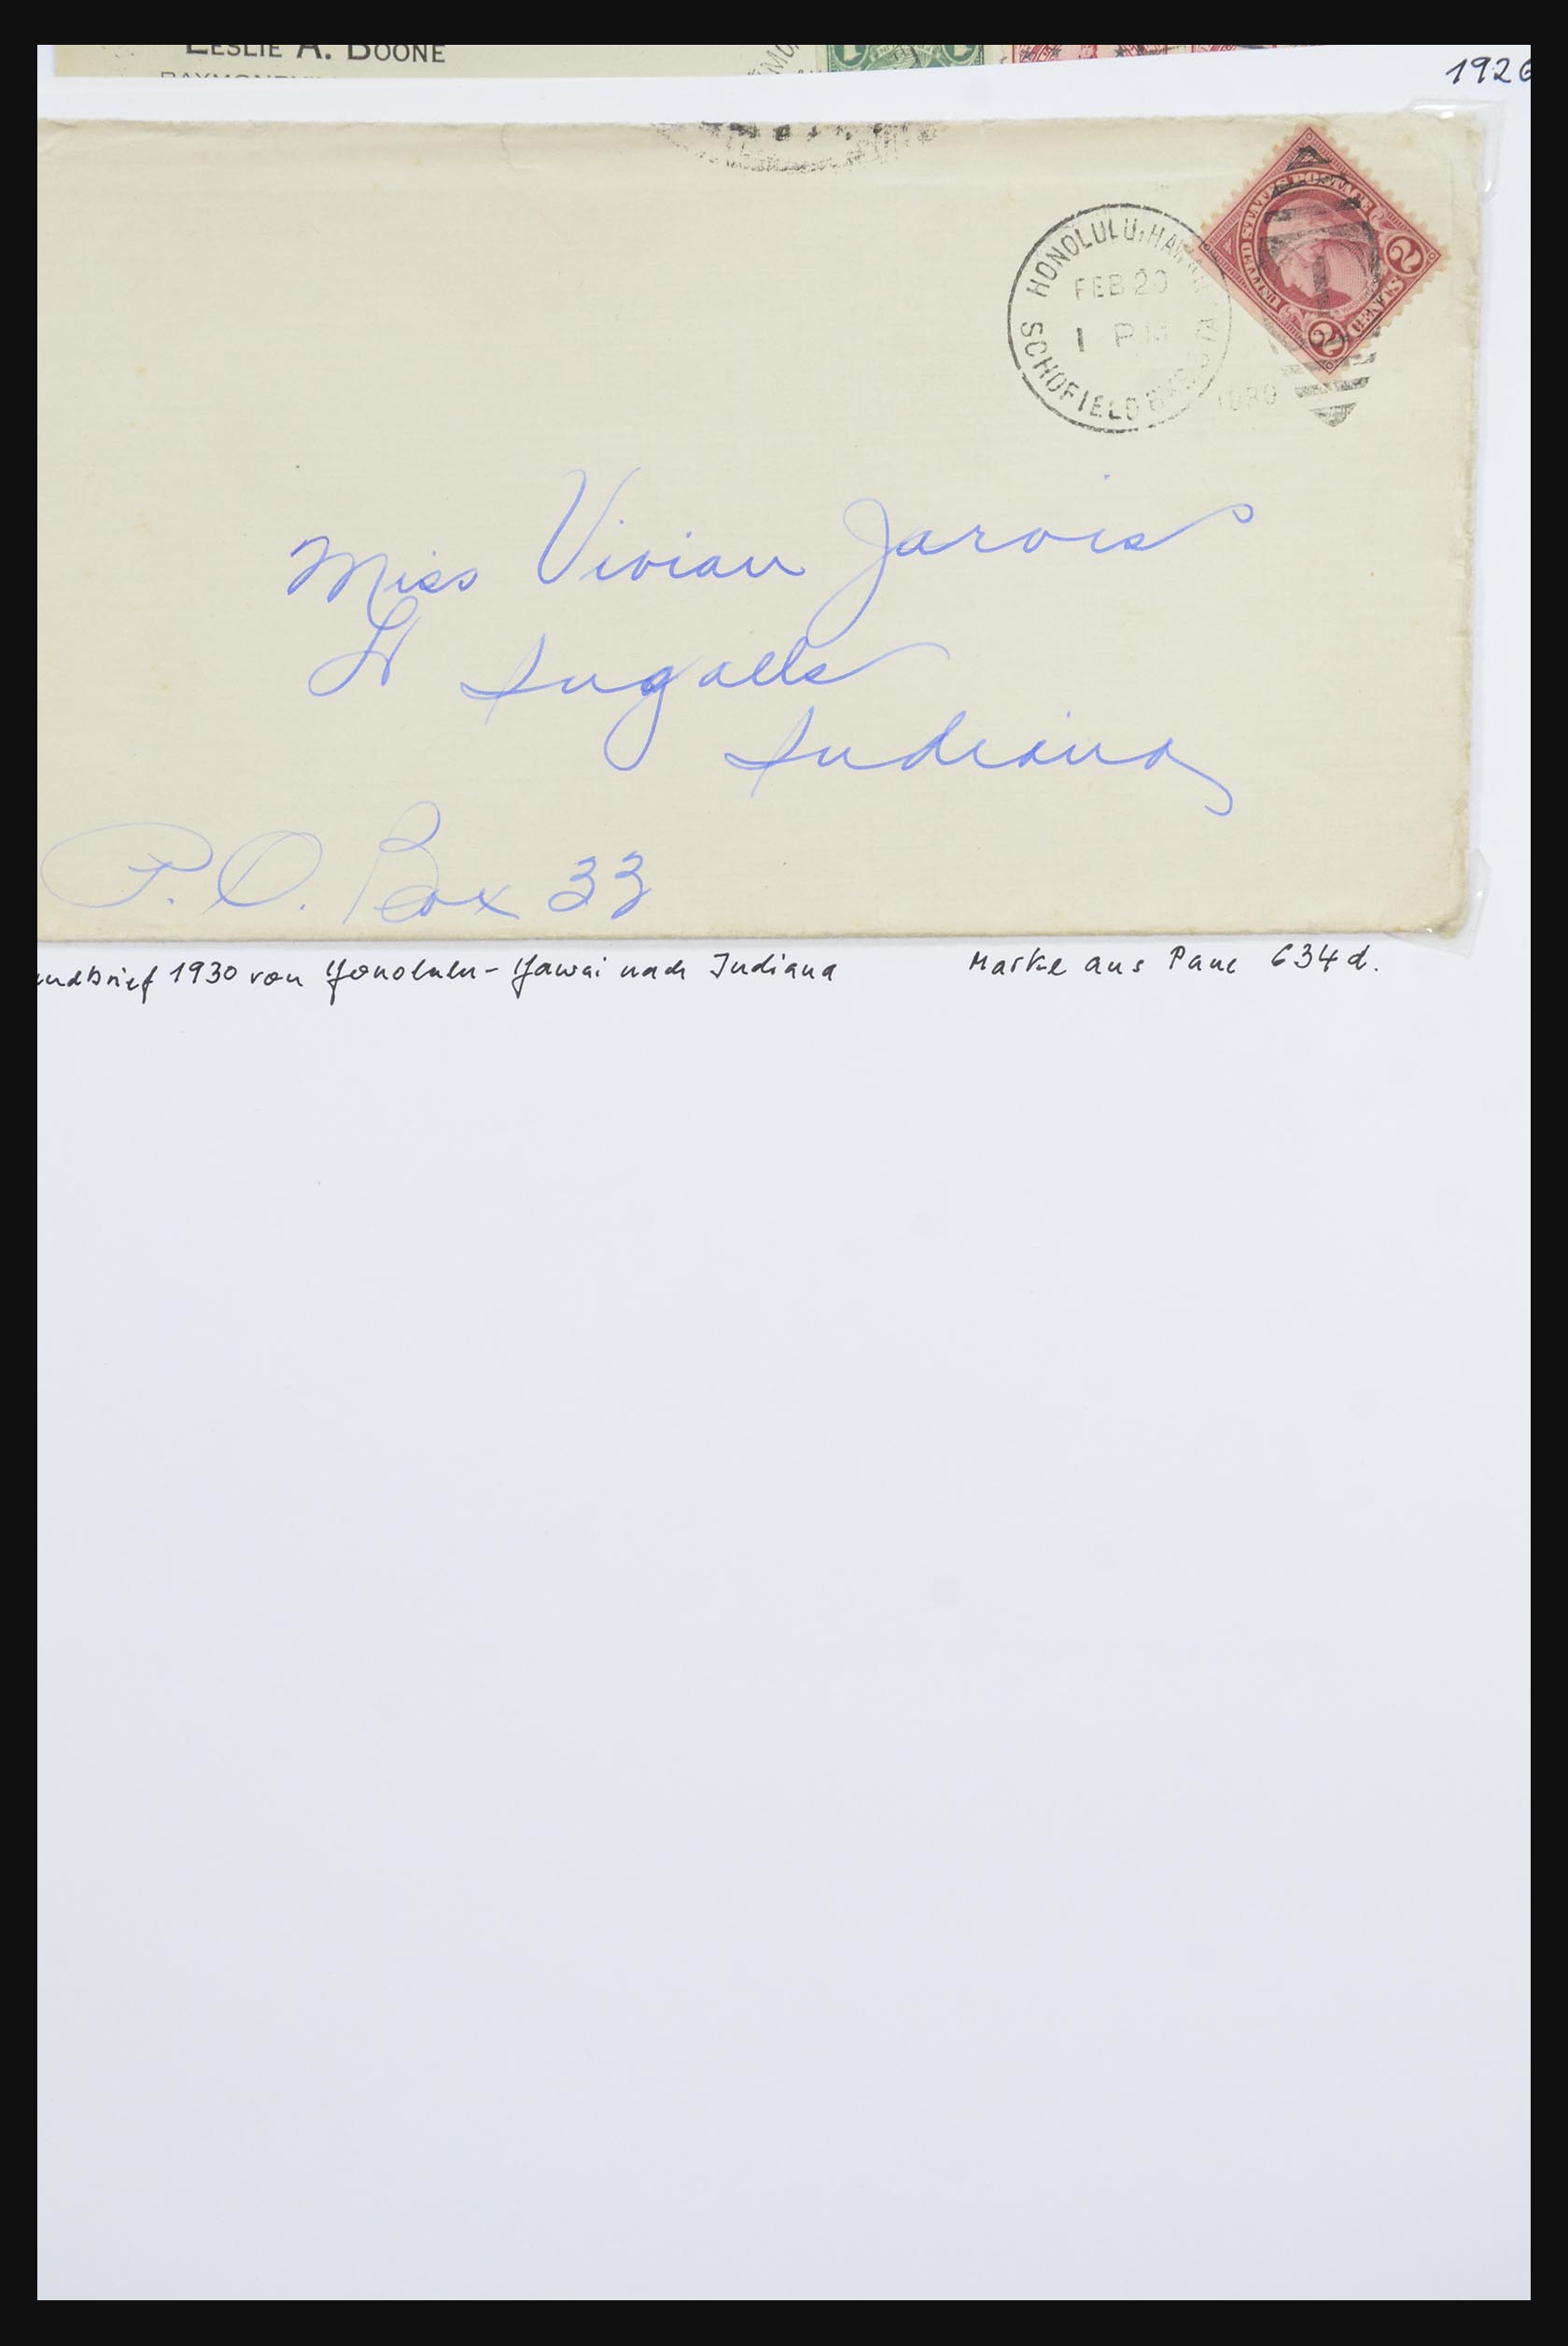 LESLIE A. BOONE
1926
HONOLULU, HAWAII
FEB 20
1 PM
SCHOFIELD BKS. STA
1930
UNITED STATES POSTAGE
2 CENTS 2
Miss Vivian Jarvis
Ingalls
Indiana
P.O. Box 33
1930 von Honolulu - Hawai nach Indiana
Marke aus Pane 634d.